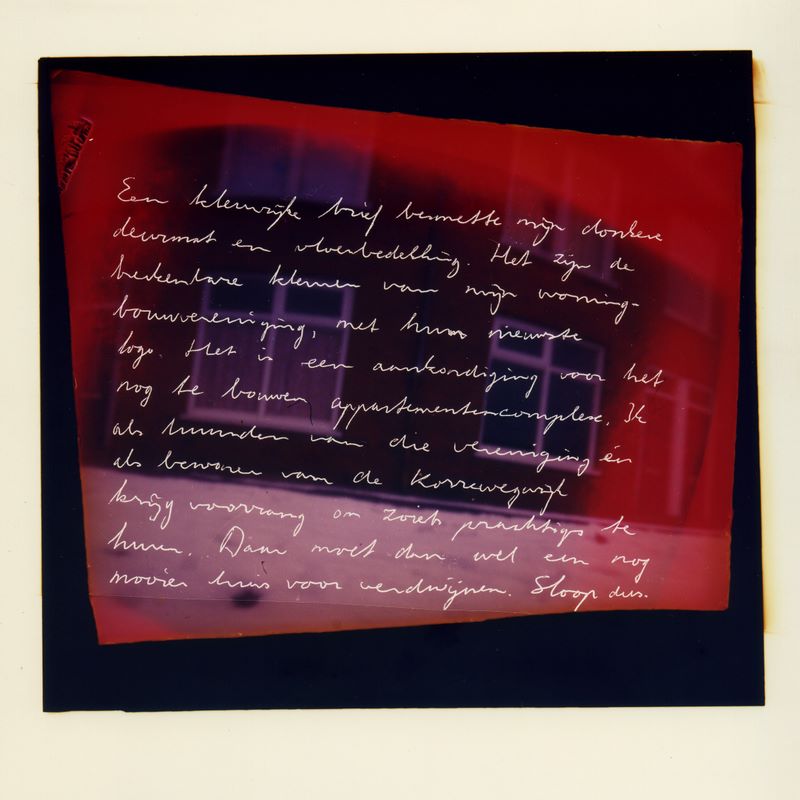 Een kleurrijke brief besmette mijn donkere
deurmat en vloerbedekking. Het zijn de
herkenbare kleuren van mijn woning-
bouwvereniging, met hun nieuwste
logo. Het is een aankondiging voor het
nog te bouwen appartementencomplex. Ik
als huurder van die vereniging én
als bewoner van de Korrewegwijk
krijg voorrang om zoiets prachtigs te
huren. Daar moet dan wel een nog
mooier huis voor verdwijnen. Sloop dus.